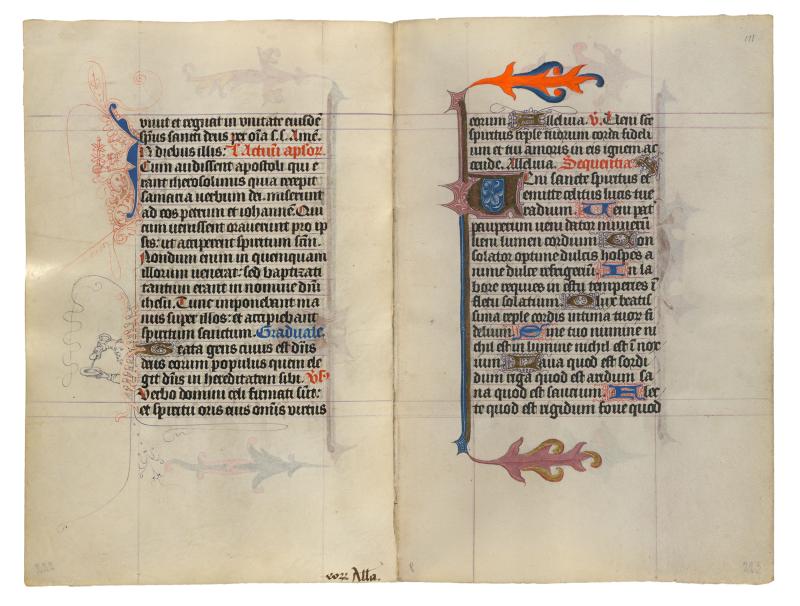 viuit et regnat in vnitate eiusdē
sp̄us sancti deus per oīa s. s. Amē.
In diebus illis: l. Actuū apłor.
Cum audissent apostoli qui e
rant iherosolimis quia recepit
samaria uerbum dei. miserunt
ad eos petrum et iohannē. Qui
cum uenissent orauerunt pro ip
sis: ut acciperent spiritum sc̄m.
Nondum enim in quemquam
illorum uenerat: sed baptizati
tantum erant in nomine dn̄i
ihesu. Tunc imponebant ma
nus super illos: et accipiebant
spiritum sanctum. Graduale.
Beata gens cuius est dn̄s
deus eorum populus quem ele
git dn̄s in hereditatem sibi. Vs̄
Verbo domini celi firmati sūt:
et spiritu oris eius omīs uirtus
corr Alła.
222
111
eorum Alleluia. V. Ueni sc̄e
spiritus reple tuorum corda fideli
um et tui amoris in eis ignem ac
cende. Alleluia. Sequentia
Ueni sancte spiritus et
emitte celitus lucis tue
radium. Ueni pat᷑
pauperum ueni dator munerū
ueni lumen cordium Con
solator optime dulcis hospes a
nime dulce refrigeriū. In la
bore requies in estu temperies ī
fletu solatium. O lux beatis
sima reple cordis intima tuor̄ fi
delium. Sine tuo numine ni
chil est in lumine nichil est ī nox
ium Laua quod est sordi
dum riga quod est aridum sa
na quod est saucium. Flec
te quod est rigidum foue quod
223